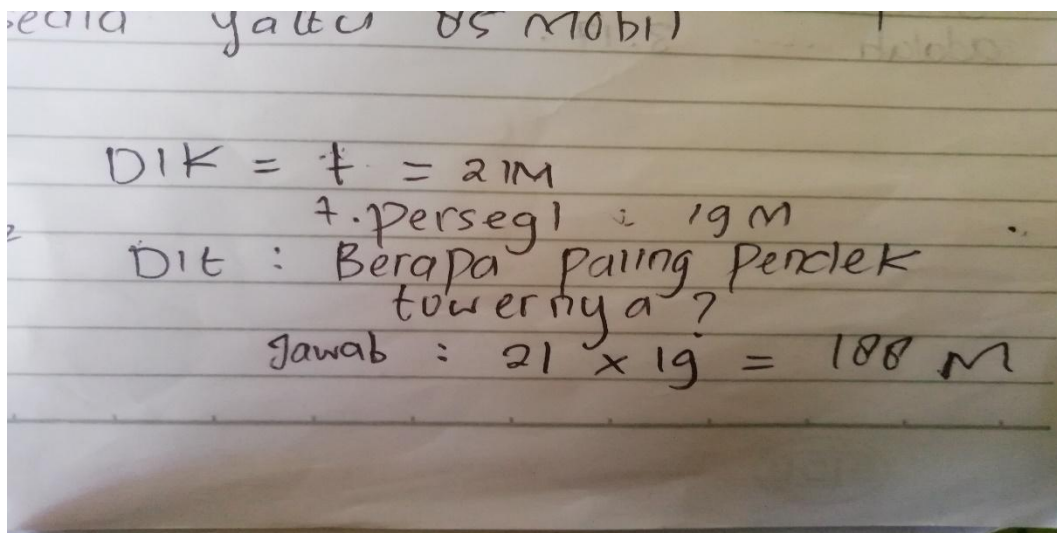 sedia yaitu 85 Mobil
DIK = t = 21M
t. persegi : 19 M
Dit : Berapa paling pendek
towernya?
Jawab : 21 x 19 = 188 M